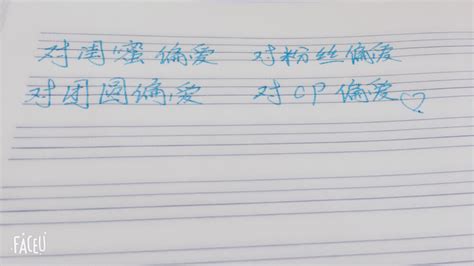 对闺蜜偏爱 对粉丝偏爱
对团圆偏爱 对CP偏爱♡
FACEU